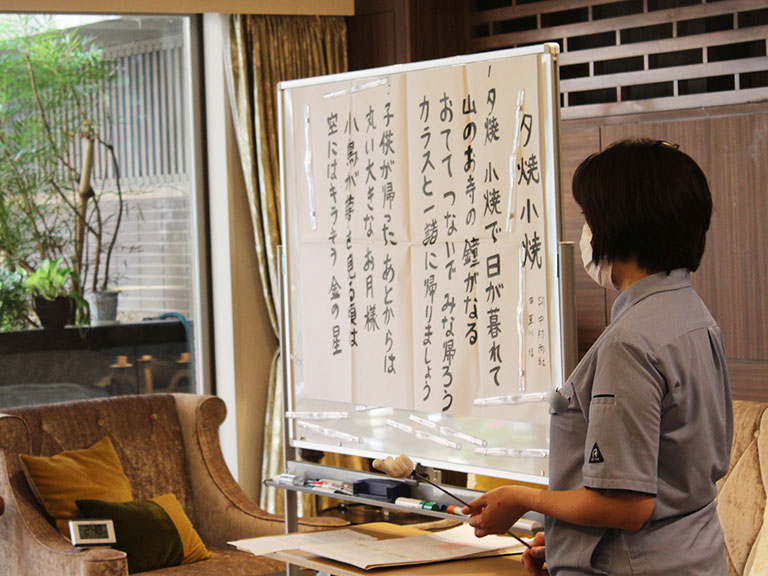 夕焼小焼
詞 中村雨紅
一夕焼 小焼で 日が暮れて
山のお寺の 鐘がなる
おてて つないで みな帰ろう
カラスと一諸に 帰りましょう
子供が帰った あとからは
丸い大きな お月様
小鳥が夢を見る頃は
空にはキラキラ 金の星